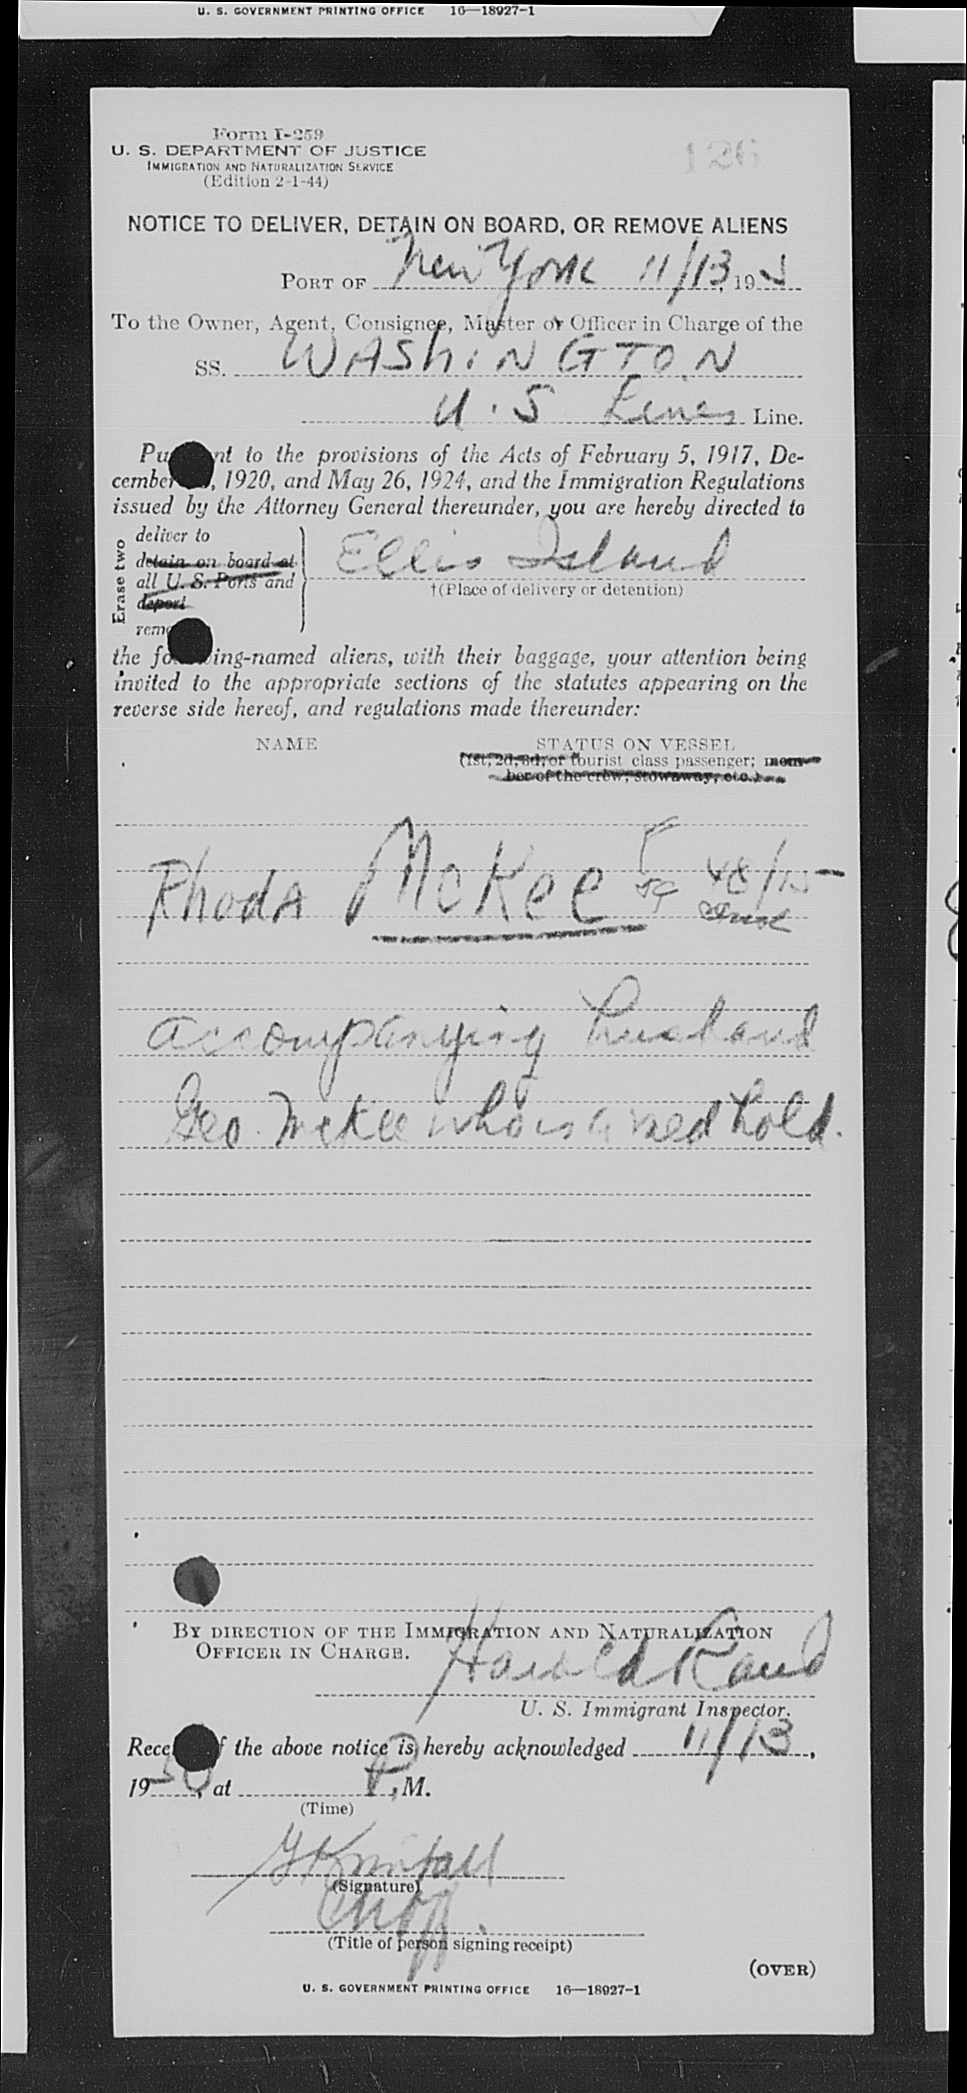 U. S. GOVERNMENT PRINTING OFFICE 16—18927-1
Form I-259
U. S. DEPARTMENT OF JUSTICE
IMMIGRATION AND NATURALIZATION SERVICE
(Edition 2-1-44)
126
NOTICE TO DELIVER, DETAIN ON BOARD, OR REMOVE ALIENS
PORT OF New York 11/13, 19
To the Owner, Agent, Consignee, Master or Officer in Charge of the
SS. WASHINGTON
U.S Lines Line.
Pu nt to the provisions of the Acts of February 5, 1917, De-
cember , 1920, and May 26, 1924, and the Immigration Regulations
issued by the Attorney General thereunder, you are hereby directed to
Erase two
deliver to
detain on board at
all U. S. Ports and
deport
rem
Ellis Island
†(Place of delivery or detention)
the fo ing-named aliens, with their baggage, your attention being
invited to the appropriate sections of the statutes appearing on the
reverse side hereof, and regulations made thereunder:
NAME STATUS ON VESSEL
(1st, 2d, 3d, or tourist class passenger; mem-
ber of the crew, stowaway, etc.)
Rhoda McKee 48/15
accompanying husband
Geo. McKee who is a med hold.
BY DIRECTION OF THE IMMIGRATION AND NATURALIZATION
OFFICER IN CHARGE.
Harold Rand
U. S. Immigrant Inspector.
Rece f the above notice is hereby acknowledged 11/13,
1950, at P.M.
(Time)
(Signature)
(Title of person signing receipt)
(OVER)
U. S. GOVERNMENT PRINTING OFFICE 16—18927-1